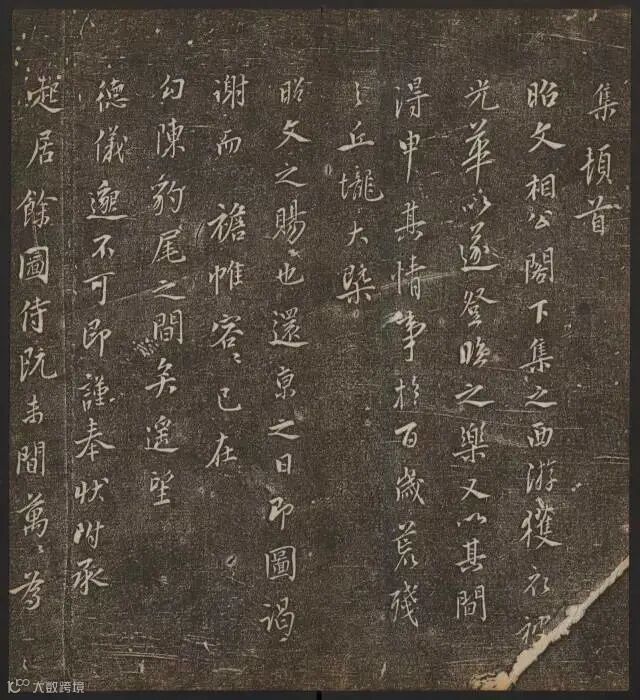 集頓首
昭文相公閣下集之西游獲衣被
光華以遂登臨之樂又以其間
得申其情事於百歲荒殘
之丘壠大槩
昭文之賜也還京之日即圖謁
謝而 襜帷容容已在
勾陳豹尾之間矣遥望
德儀邈不可即謹奉狀附承
起居餘圖侍既未間萬萬為
大数跨境